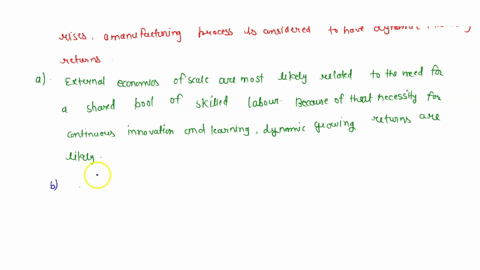 rises, a manufacturing process is considered to have dynamic
returns.
a) External economies of scale are most likely related to the need for
a shared pool of skilled labour. Because of that necessity for
continuous innovation and learning, dynamic growing returns are
likely.
b)